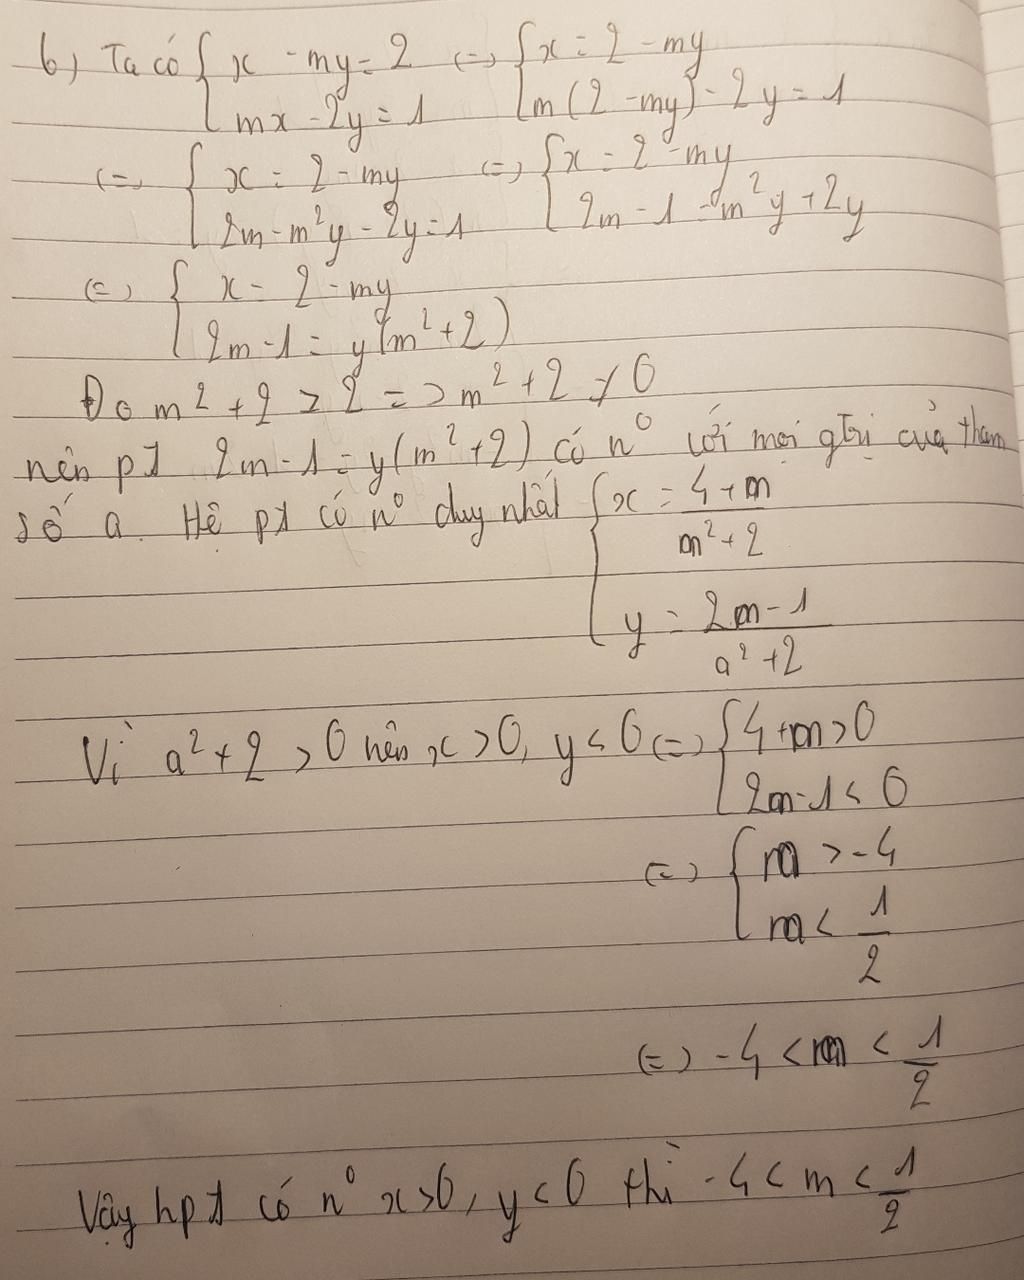 b) Ta có { x - my = 2 <=> { x = 2 - my
mx - 2y = 1 m(2 - my) - 2y = 1
<=> { x = 2 - my <=> { x = 2 - my
2m - m²y - 2y = 1 2m - 1 = m²y + 2y
<=> { x = 2 - my
2m - 1 = y(m² + 2)
Do m² + 2 > 2 => m² + 2 ≠ 0
nên pt 2m - 1 = y(m² + 2) có n° với mọi gtrị của tham
số a. Hệ pt có n° duy nhất { x = (4 + m)/(m² + 2)
y = (2m - 1)/(a² + 2)
Vì a² + 2 > 0 nên x > 0, y < 0 <=> { 4 + m > 0
2m - 1 < 0
<=> { m > -4
m < 1/2
<=> -4 < m < 1/2
Vậy hpt có n° x > 0, y < 0 thì -4 < m < 1/2